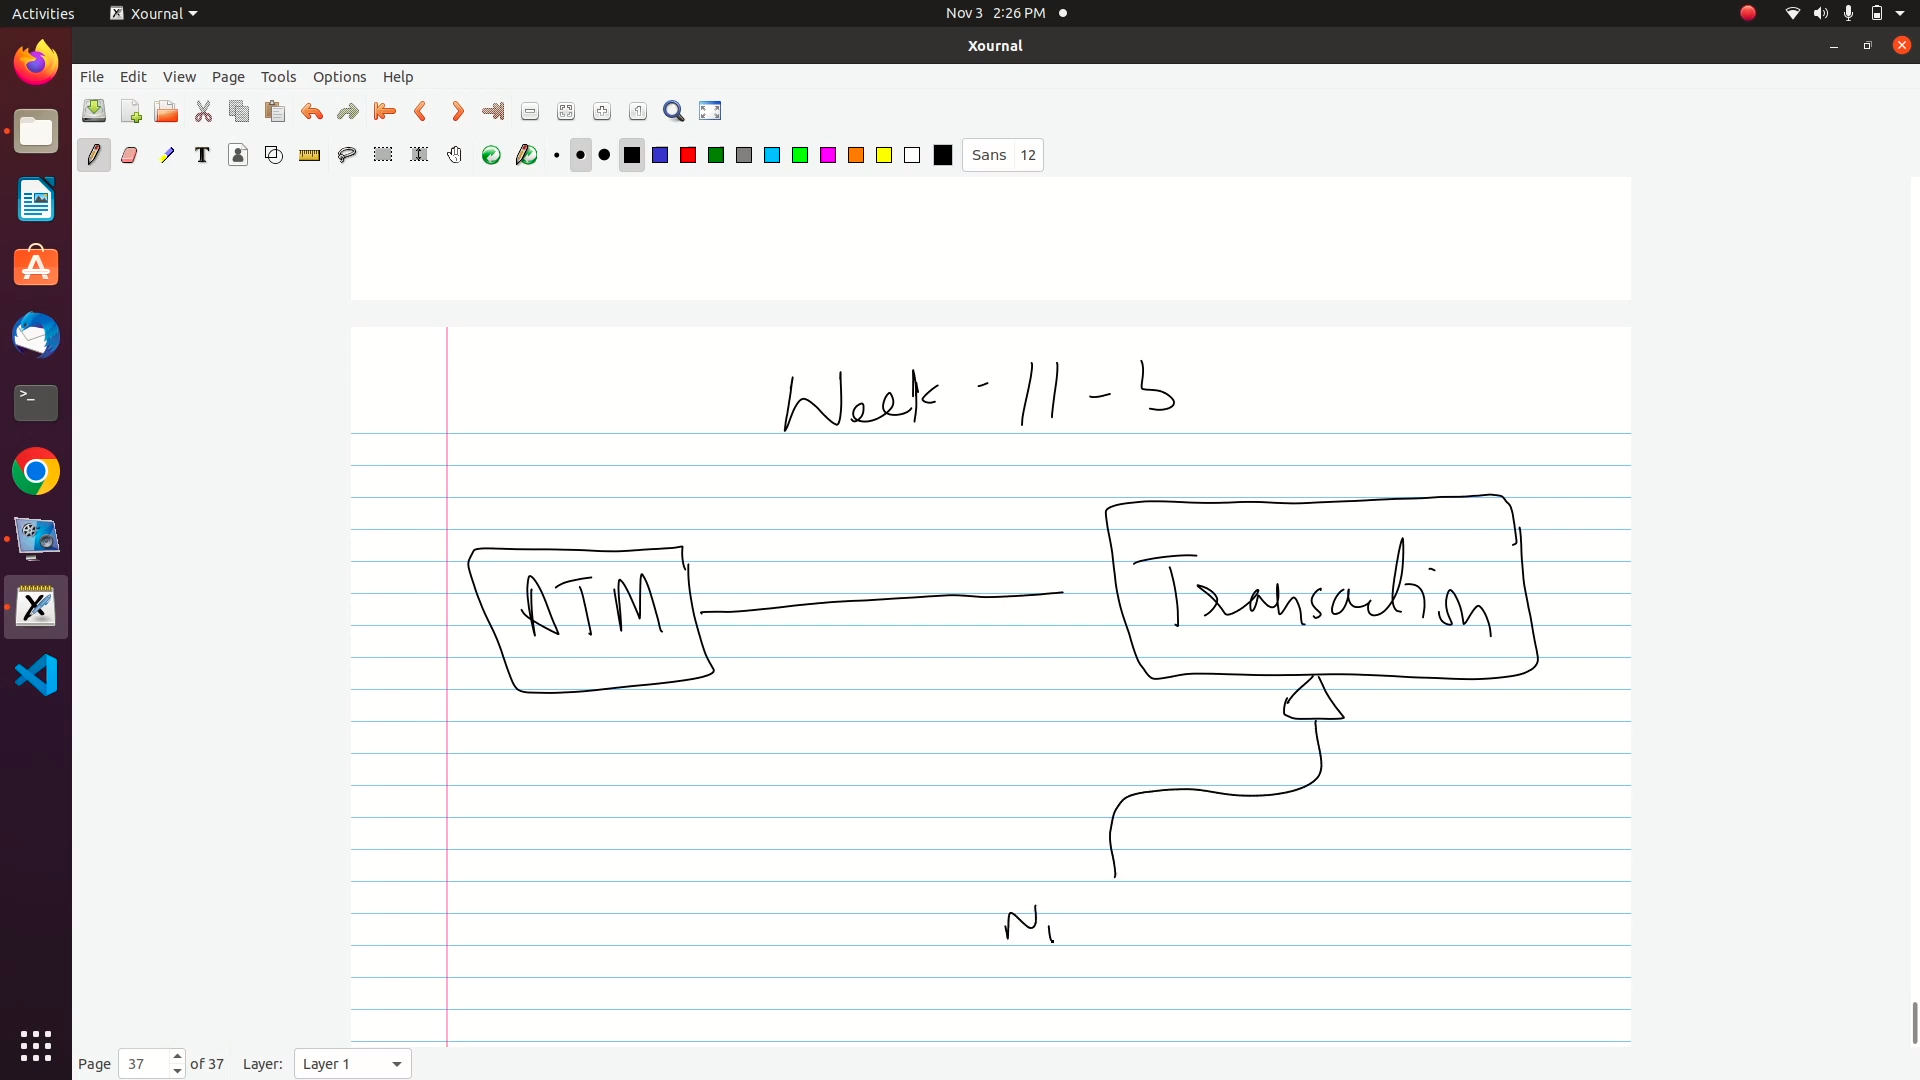 Activities Xournal Nov 3 2:26 PM
Xournal
File Edit View Page Tools Options Help
Sans 12
Week - 11 - 3
ATM
Transaction
Page 37 of 37 Layer: Layer 1